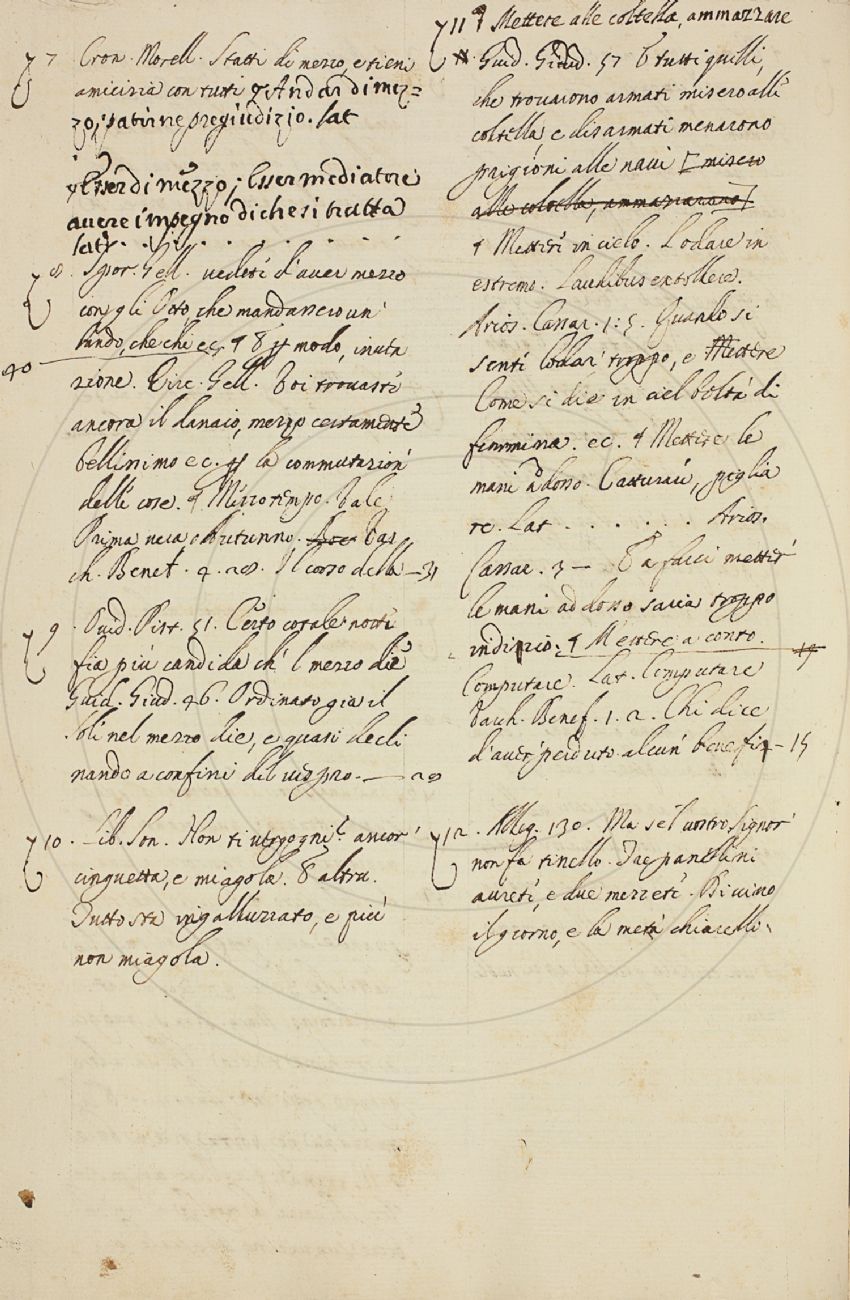 7 Cron. Morell. Statti di mezzo, e tieni
amicizia con tutti ¶ Andar di mez=
zo; patirne pregiudizio. Lat
¶ Esser di mezzo; Esser mediatore
avere impegno di che si tratta
Lat. . . . . . .
8. Spor. Gell. vedeti d'aver mezzo
con gli Otto, che mandassero un
bando, che chi ec. ¶ P modo, inven
40
zione. Circ. Gell. Poi trovasti
ancora il danaio, mezzo certamente
bellissimo ec. la commutazion
delle cose. ¶ Mezzo tempo. Vale
Prima vera o Autunno.
ch. Benef. 4. 28. Il corso della – 31
9. Ovid. Pist. 51. Certo cotale notti
fia più candida ch'l mezzo die
Guid. Giud. 46. Ordinato gia il
Sole nel mezzo die, e quasi decli
nando a confini del vespro. — 28
10. Lib. Son. Non ti vergogni ancor
cinguetta, e miagola. E altra.
Tutto sta ingalluzzato, e più
non miagola.
11 ¶ Mettere alle coltella, ammazzare
Guid. Giud. 57 E tutti quelli,
che trovarono armati misero alle
coltella, e disarmati menarono
prigioni alle navi [misero
alle coltella, ammazzarono]
¶ Mettere in cielo. Lodare in
estremo. Laudibus extollere.
Arios. Cassar. 1. 5. Quando si
senti lodar troppo, e Mettere
Come si dice in ciel beltà di
femmina. ec. ¶ Mettere le
mani adosso. Catturare, peglia
re. Lat . . . . . . . Arios.
Cassar. 3 – E a farci metter
le mani addosso saria troppo
indizio. ¶ Mettere a conto.
Computare. Lat. Computare
Varch. Benef. 1. 2. Chi dice
d'aver perduto alcun benefiz – 15
12. Alleg. 130. Ma se'l vostro Signor
non fa tinello. Tre panellini
avrete, e due mezzette. Di vino
il giorno, e la metà chiarelli.